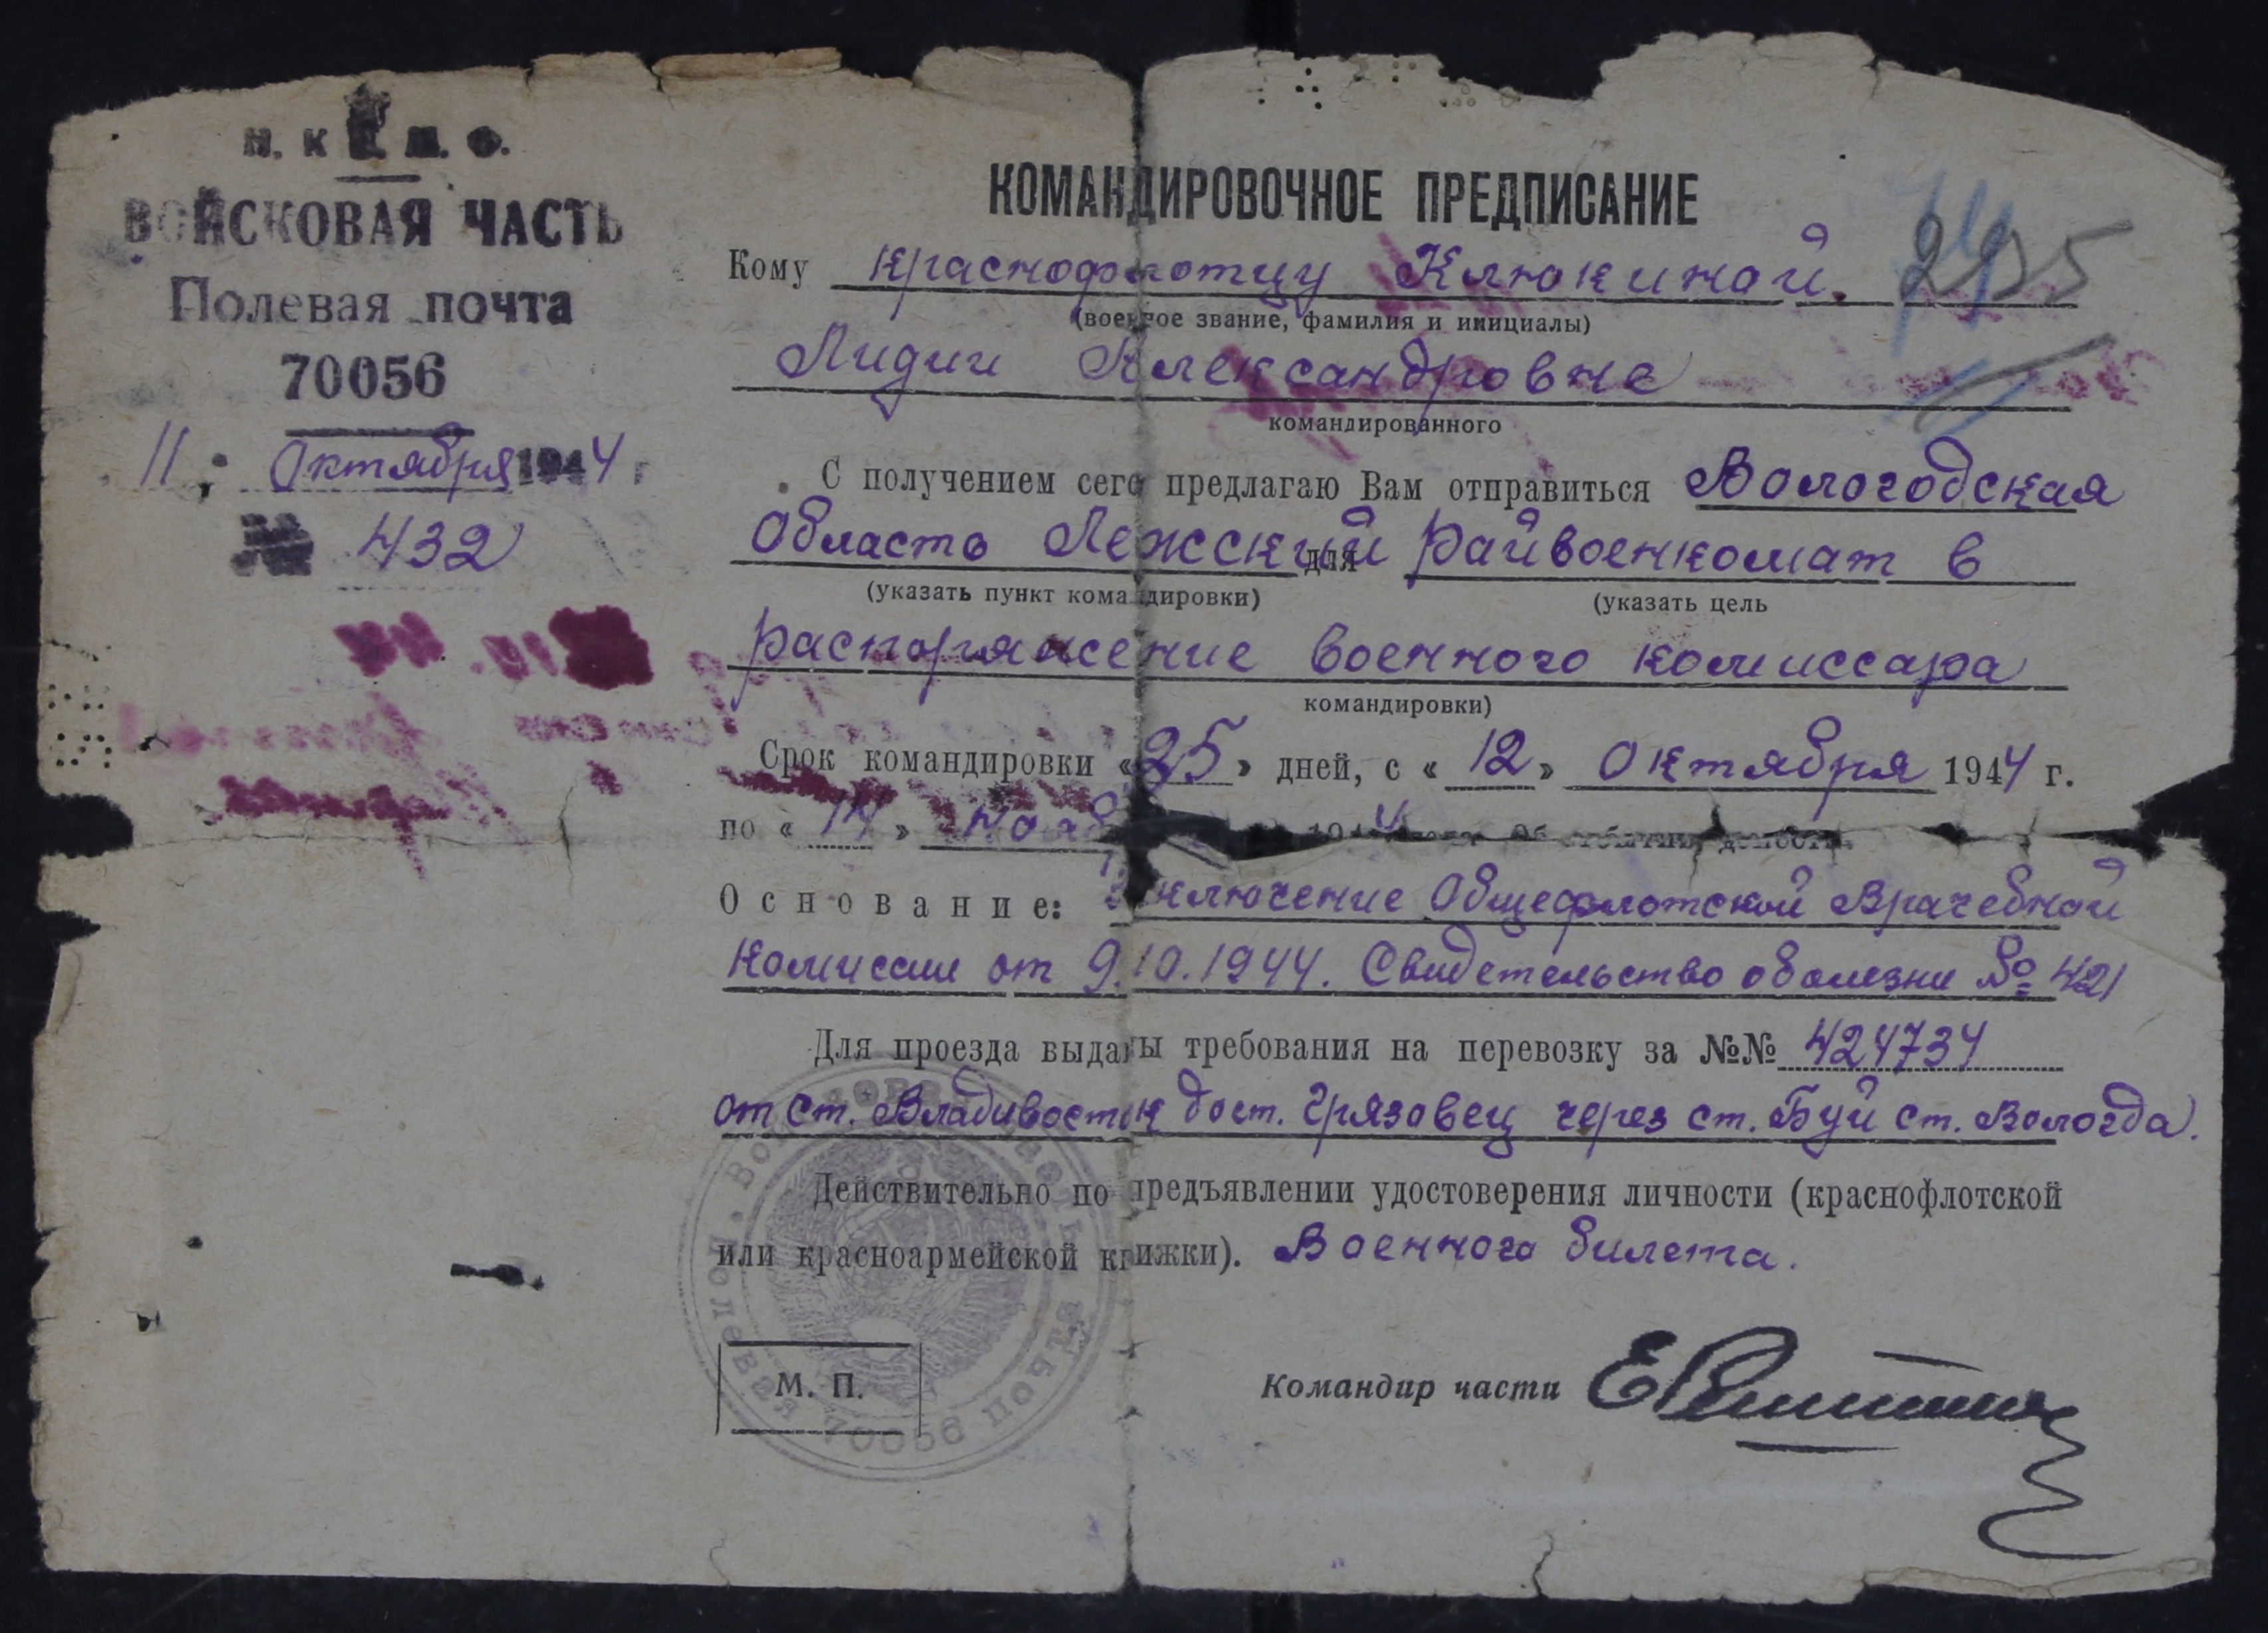 ВОЙСКОВАЯ ЧАСТЬ
Полевая почта
70056
11. Октября 1944 г
№ 432
КОМАНДИРОВОЧНОЕ ПРЕДПИСАНИЕ
Кому краснофлотцу Клюкиной.
(военное звание, фамилия и инициалы)
Лидии Александровне
командированного
С получением сего предлагаю Вам отправиться Вологодская
Область Лежский для Райвоенкомат в
(указать пункт командировки) (указать цель
распоряжение военного комиссара
командировки)
Срок командировки «25» дней, с «12» Октября 1944 г.
по «14»
Основание: Заключение Общефлотской Врачебной
Комиссии от 9.10.1944. Свидетельство о болезни № 421
Для проезда выданы требования на перевозку за №№ 424734
от ст. Владивосток до ст. Грязовец через ст. Буй ст. Вологда.
Действительно по предъявлении удостоверения личности (краснофлотской
или красноармейской книжки). Военного билета.
М. П.
Командир части
Полевая 70056 почта